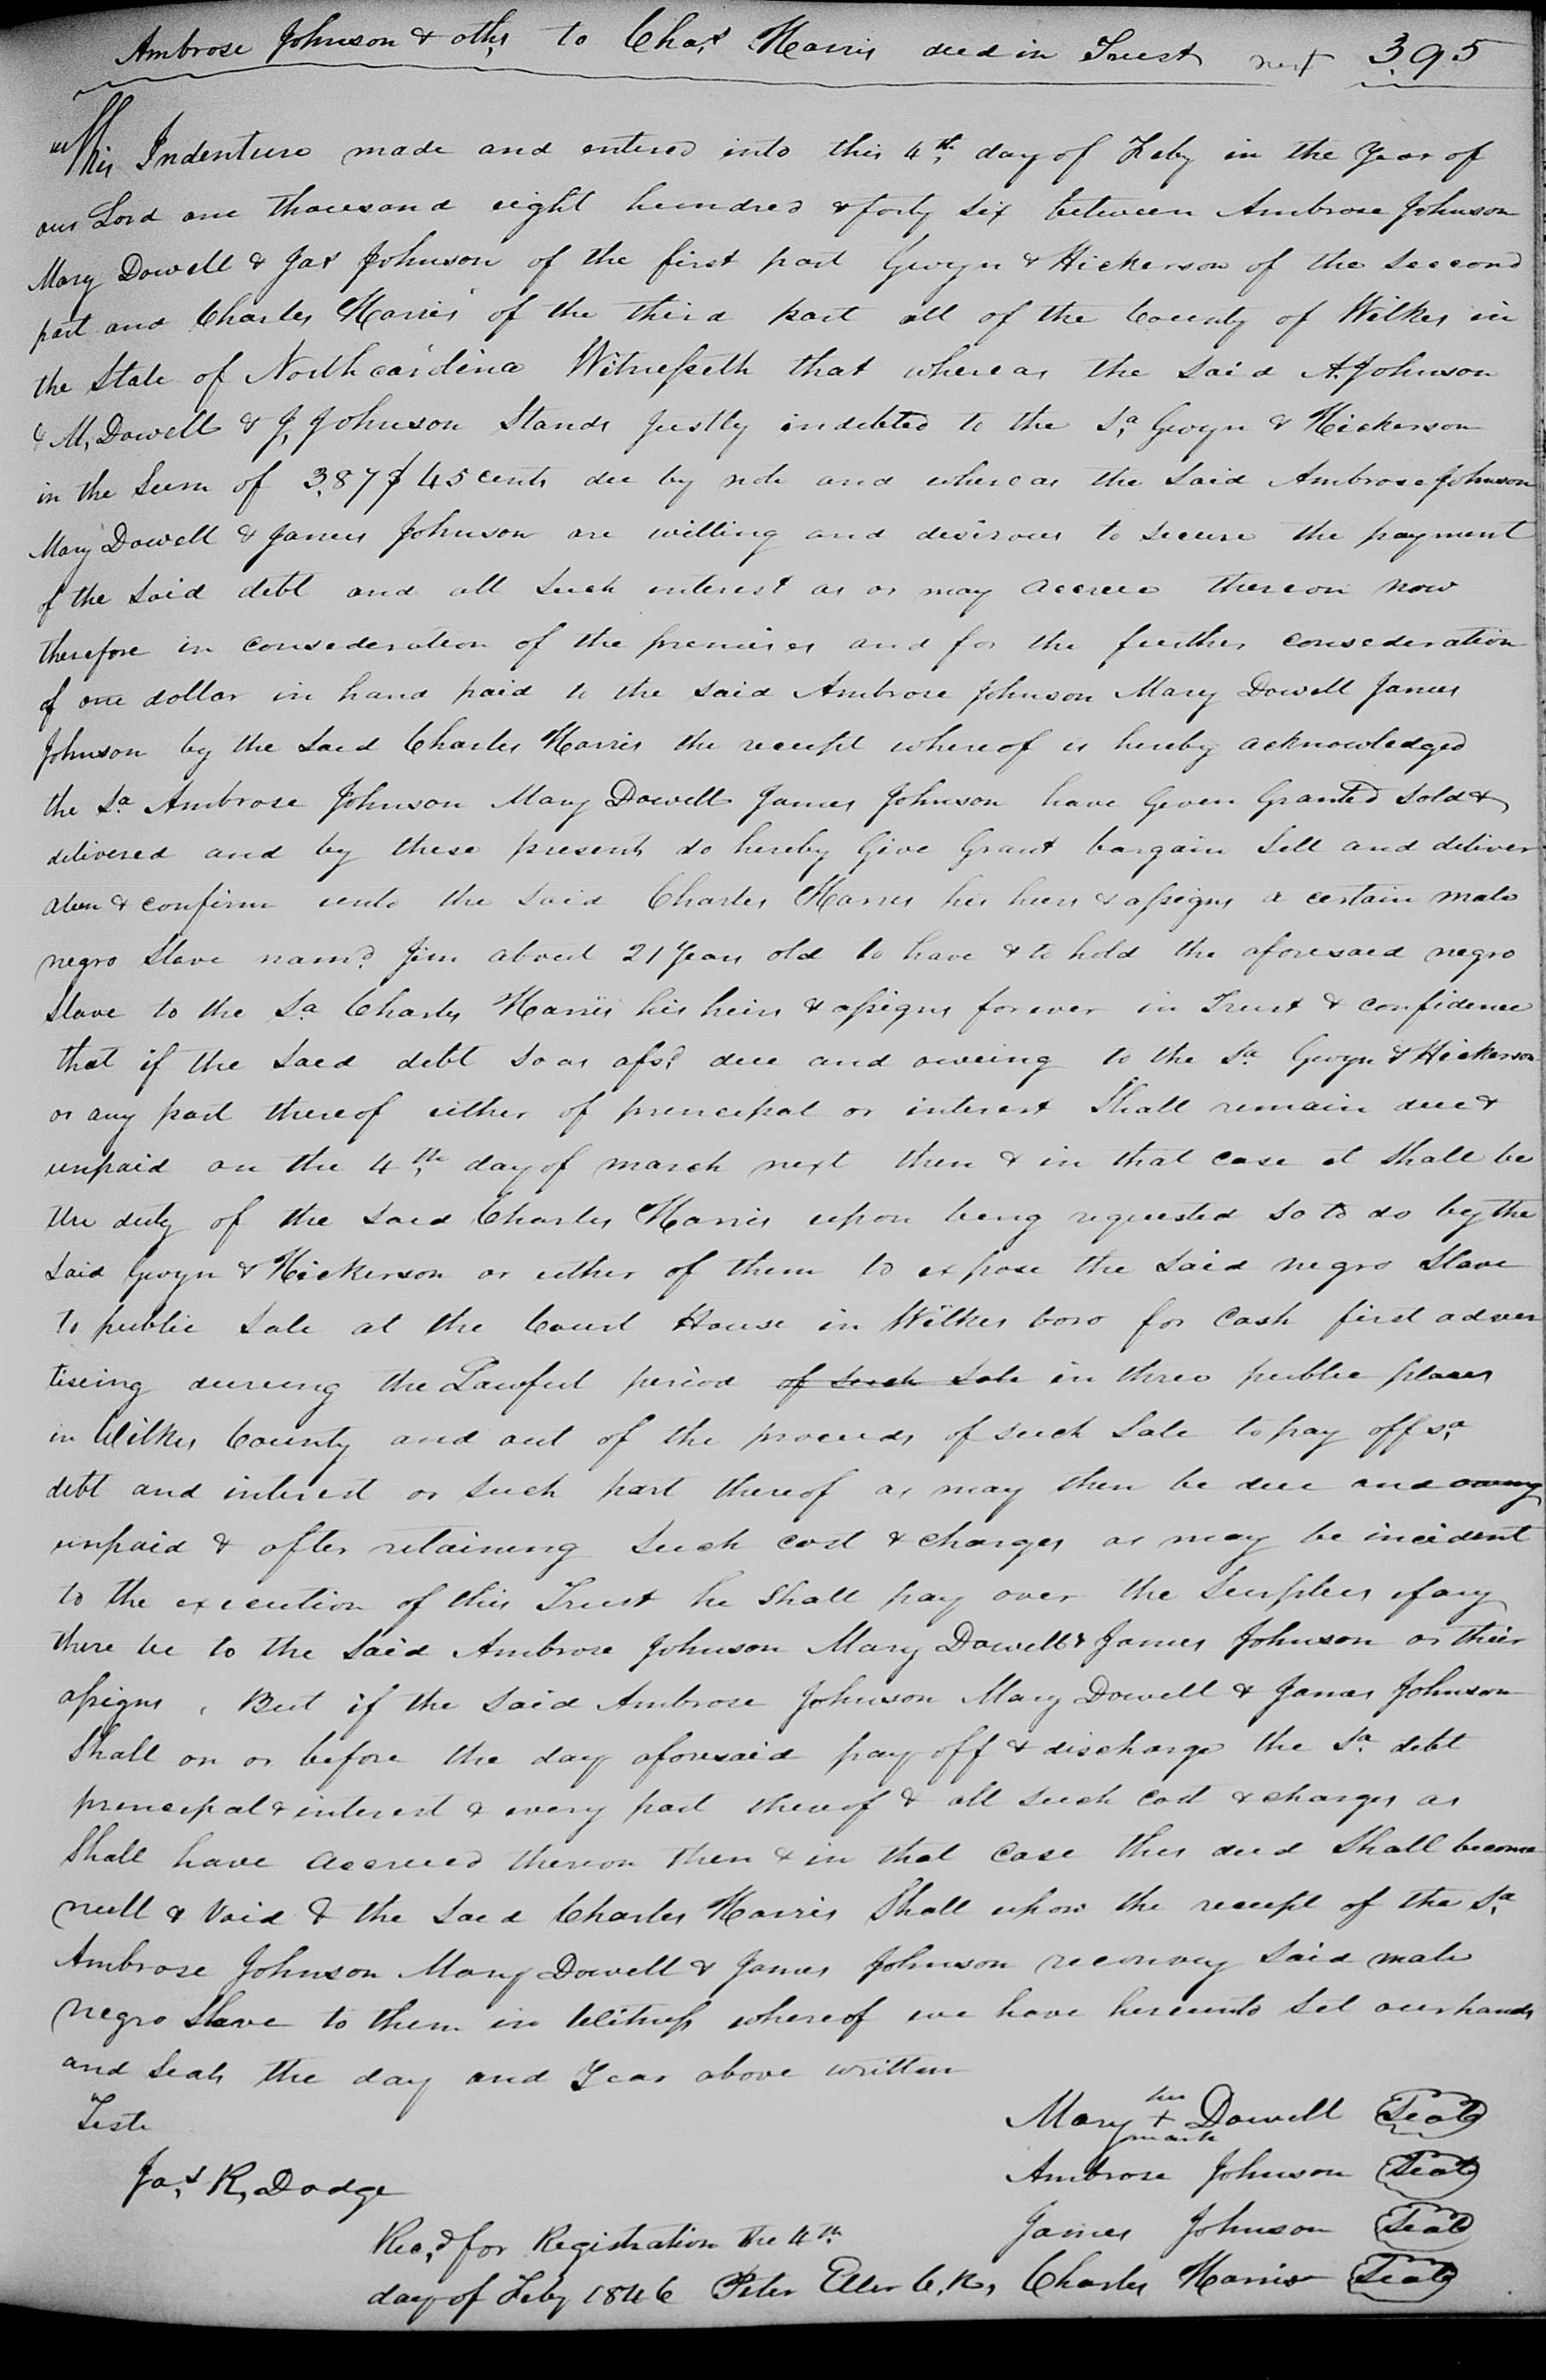 Ambrose Johnson & oths to Chas Harris deed in Trust next 395
This Indenture made and entered into this 4th day of Feby in the Year of
our Lord one thousand eight hundred & forty six between Ambrose Johnson
Mary Dowell & Jas Johnson of the first part Gwyn & Hickerson of the seccond
part and Charles Harris of the third part all of the County of Wilkes in
the State of North carolina Witnesseth that whereas the said A. Johnson
& M, Dowell & J, Johnson Stands justly indebted to the Sd Gwyn & Hickerson
in the Sum of 387$ 45 cents due by note and whereas the Said Ambrose Johnson
Mary Dowell & James Johnson are willing and desirous to secure the payment
of the said debt and all such interest as or may accrue thereon now
therefore in consederation of the premises and for the further consederation
of one dollar in hand paid to the said Ambrose Johnson Mary Dowell James
Johnson by the Said Charles Harris the receipt whereof is hereby acknowledged
the Sd Ambrose Johnson Mary Dowell James Johnson have Given Granted Sold &
delivered and by these presents do hereby Give Grant bargain Sell and deliver
alien & confirm unto the said Charles Harris his heirs & assigns a certain male
negro Slave namd Jim about 21 Years old to have & to hold the aforesaid negro
Slave to the Sd Charles Harris his heirs & assigns forever in Trust & confidence
that if the Said debt so as afsd due and oweing to the Sd Gwyn & Hickerson
or any part thereof either of prencipal or interest Shall remain due &
unpaid on the 4th day of march next then & in that case it Shall be
the duty of the Said Charles Harris upon being requested so to do by the
Said Gwyn & Hickerson or either of them to expose the Said negro Slave
to public Sale at the Court House in Wilkes boro for Cash first adver
tiseing dureing the Lawful period of such Sale in three public places
in Wilkes County and out of the proceeds of such Sale to pay off Sd
debt and interest or such part thereof as may then be due and oweing
unpaid & after retaining such cost & charges as may be incident
to the execution of this Trust he Shall pay over the Surplus if any
there be to the Said Ambrose Johnson Mary Dowell & James Johnson or their
assigns, But if the Said Ambrose Johnson Mary Dowell & James Johnson
Shall on or before the day aforesaid pay off & discharge the Sd debt
prencipal & interest & every part thereof & all such Cost & charges as
Shall have accrued thereon then & in that Case this deed Shall become
null & Void & the Said Charles Harris Shall upon the receipt of the Sd
Ambrose Johnson Mary Dowell & James Johnson reconvey Said male
negro Slave to them in Witness whereof we have hereunto Set our hands
and Seals the day and Year above written
Teste
her
Mary + Dowell Seal
mark
Jas, R, Dodge
Ambrose Johnson Seal
James Johnson Seal
Recd for Registration the 4th
day of Feby 1846 Peter Eller C, R, Charles Harris Seal